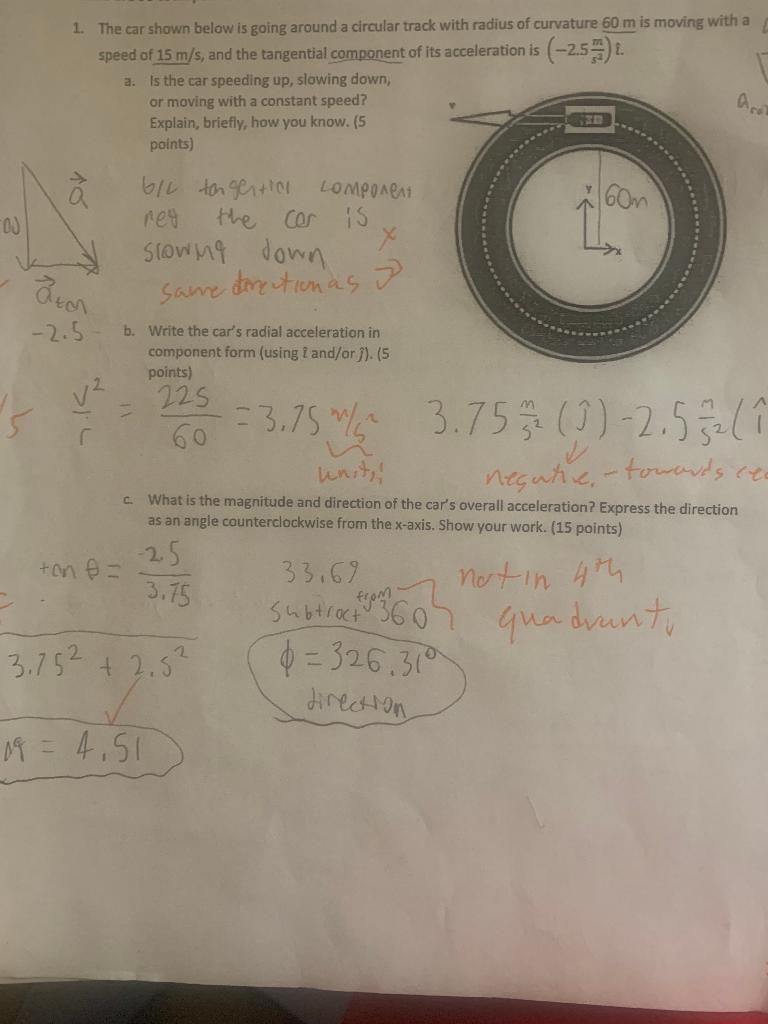 1. The car shown below is going around a circular track with radius of curvature 60 m is moving with a
speed of 15 m/s, and the tangential component of its acceleration is (-2.5 m/s²) î.
a. Is the car speeding up, slowing down,
or moving with a constant speed?
Explain, briefly, how you know. (5
points)
v
a
b/c tangential component
neg the car is
slowing down x
same direction as v
a tan
-2.5
y
60m
x
b. Write the car's radial acceleration in
component form (using î and/or ĵ). (5
points)
v²/r = 225/60 = 3.75 m/s²
units!
3.75 m/s² (ĵ) -2.5 m/s² (î
negative, - towards
c. What is the magnitude and direction of the car's overall acceleration? Express the direction
as an angle counterclockwise from the x-axis. Show your work. (15 points)
tan θ = -2.5/3.75
33.69
subtract from 360
not in 4th
quadrant
3.75² + 2.5²
ϕ = 326.31°
direction
= 4.51